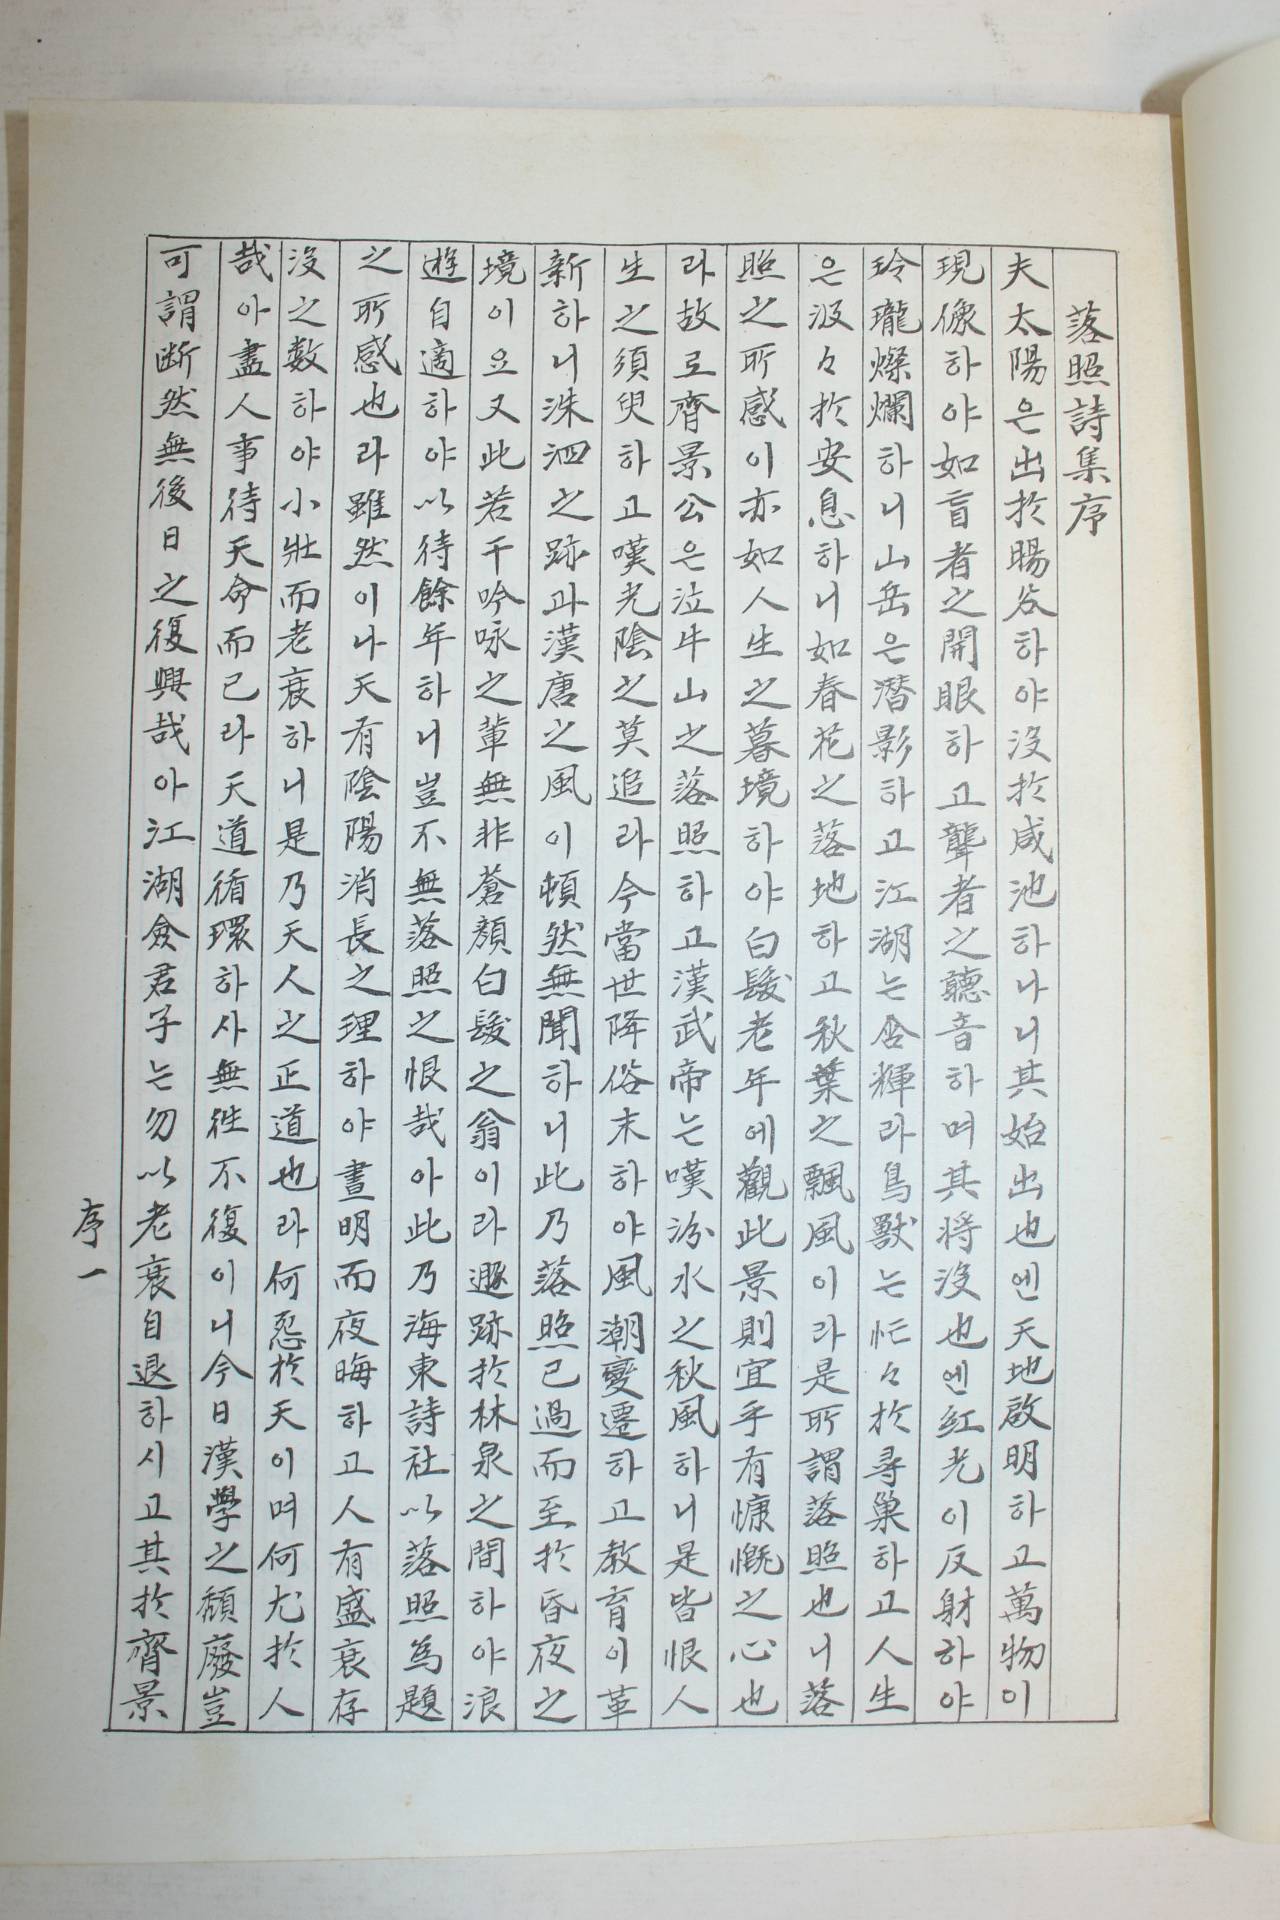 落照詩集序
夫太陽은出於暘谷하야沒於咸池하나니其始出也엔天地啟明하고萬物이
現像하야如盲者之開眼하고聾者之聽音하며其将沒也엔紅光이反射하야
玲瓏燦爛하니山岳은潜影하고江湖는含輝라鳥獸는忙々於尋巢하고人生
은汲々於安息하니如春花之落地하고秋葉之飄風이라是所謂落照也니落
照之所感이亦如人生之暮境하야白髮老年에觀此景則宜乎有慷慨之心也
라故로齊景公은泣牛山之落照하고漢武帝는嘆汾水之秋風하니是皆恨人
生之須臾하고嘆光陰之莫追라今當世降俗末하야風潮變遷하고教育이革
新하니洙泗之跡과漢唐之風이頓然無聞하니此乃落照已過而至於昏夜之
境이요又此若干吟咏之輩無非蒼顏白髮之翁이라遯跡於林泉之間하야浪
遊自適하야以待餘年하니豈不無落照之恨哉아此乃海東詩社以落照為題
之所感也라雖然이나天有陰陽消長之理하야晝明而夜晦하고人有盛衰存
沒之数하야小壯而老衰하니是乃天人之正道也라何怨於天이며何尤於人
哉아盡人事待天命而已라天道循環하사無往不復이니今日漢學之頹廢豈
可謂断然無後日之復興哉아江湖僉君子는勿以老衰自退하시고其於齊景
序一